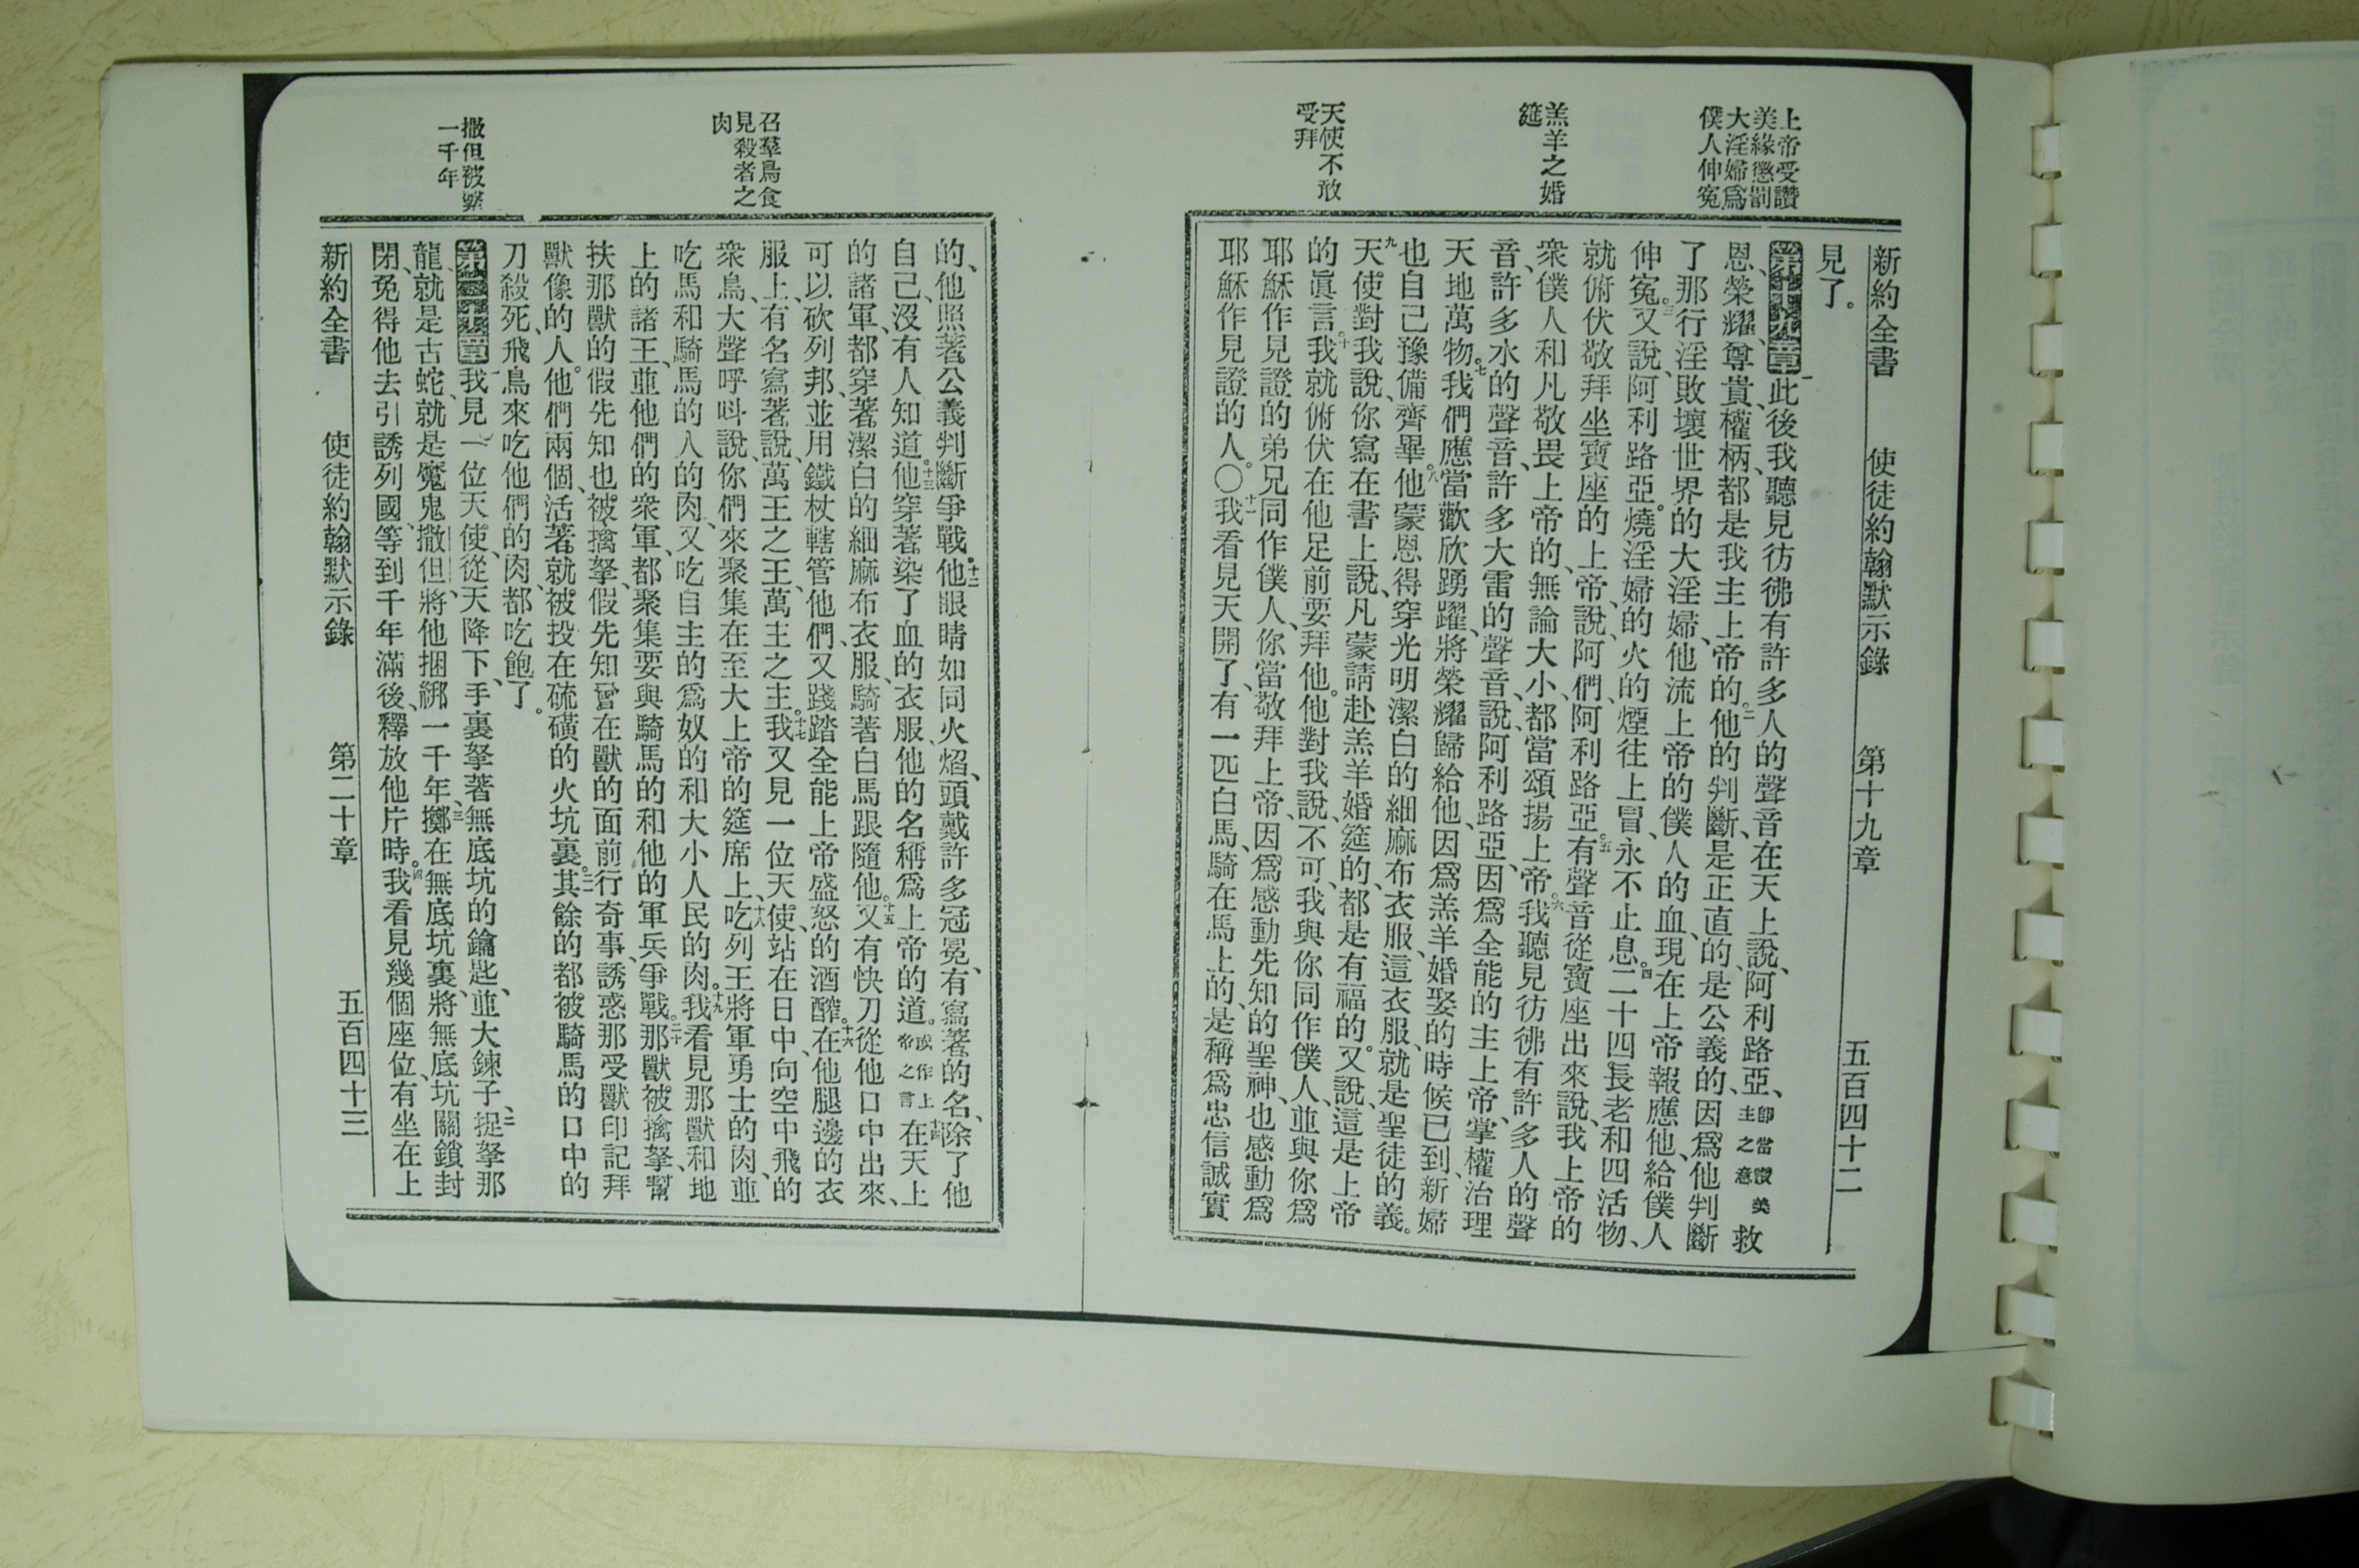 上帝受讚
美緣懲罰
大淫婦爲
僕人伸冤
羔羊之婚
筵
天使不敢
受拜
新約全書 使徒約翰默示錄 第十九章 五百四十二
見了。
第十九章一此後我聽見彷彿有許多人的聲音在天上說、阿利路亞、卽當讚美主之意救
恩、榮耀、尊貴、權柄、都是我主上帝的。二他的判斷、是正直的、是公義的、因爲他判斷
了那行淫敗壞世界的大淫婦、他流上帝的僕人的血、現在上帝報應他、給僕人
伸冤。三又說、阿利路亞。燒淫婦的火的煙往上冒、永不止息。四二十四長老和四活物、
就俯伏敬拜坐寶座的上帝、說、阿們、阿利路亞。五有聲音從寶座出來說、我上帝的
衆僕人和凡敬畏上帝的、無論大小、都當頌揚上帝。六我聽見彷彿有許多人的聲
音、許多水的聲音、許多大雷的聲音、說、阿利路亞、因爲全能的主上帝、掌權治理
天地萬物。七我們應當歡欣踴躍、將榮耀歸給他、因爲羔羊婚娶的時候已到、新婦
也自己豫備齊畢。八他蒙恩得穿光明潔白的細麻布衣服、這衣服、就是聖徒的義。
九天使對我說、你寫在書上說、凡蒙請赴羔羊婚筵的、都是有福的。又說、這是上帝
的眞言。十我就俯伏在他足前要拜他。他對我說、不可、我與你同作僕人、並與你爲
耶穌作見證的弟兄同作僕人、你當敬拜上帝、因爲感動先知的聖神、也感動爲
耶穌作見證的人。〇十一我看見天開了、有一匹白馬、騎在馬上的、是稱爲忠信誠實
召羣鳥食
見殺者之
肉
撒但被繫
一千年
的、他照著公義判斷爭戰。十二他眼睛如同火熖、頭戴許多冠冕、有寫著的名、除了他
自己、沒有人知道。十三他穿著染了血的衣服、他的名稱爲上帝的道。或作上帝之言十四在天上
的諸軍、都穿著潔白的細麻布衣服、騎著白馬跟隨他。十五又有快刀從他口中出來、
可以砍列邦、並用鐵杖轄管他們、又踐踏全能上帝盛怒的酒醡。十六在他腿邊的衣
服上、有名寫著、說、萬王之王、萬主之主。十七我又見一位天使、站在日中、向空中飛的
衆鳥、大聲呼呌說、你們來聚集在至大上帝的筵席上、十八吃列王將軍勇士的肉、並
吃馬和騎馬的人的肉、又吃自主的爲奴的和大小人民的肉。十九我看見那獸和地
上的諸王、並他們的衆軍、都聚集要與騎馬的和他的軍兵爭戰。二十那獸被擒拏、幫
扶那獸的假先知也被擒拏、假先知曾在獸的面前行奇事、誘惑那受獸印記拜
獸像的人。他們兩個、活著就被投在硫磺的火坑裏。二一其餘的都被騎馬的口中的
刀殺死、飛鳥來吃他們的肉、都吃飽了。
第二十章一我見一位天使、從天降下、手裏拏著無底坑的鑰匙、並大鍊子、二捉拏那
龍、就是古蛇、就是魔鬼撒但、將他捆綁一千年、三擲在無底坑裏、將無底坑關鎖封
閉、免得他去引誘列國、等到千年滿後、釋放他片時。四我看見幾個座位、有坐在上
新約全書 使徒約翰默示錄 第二十章 五百四十三